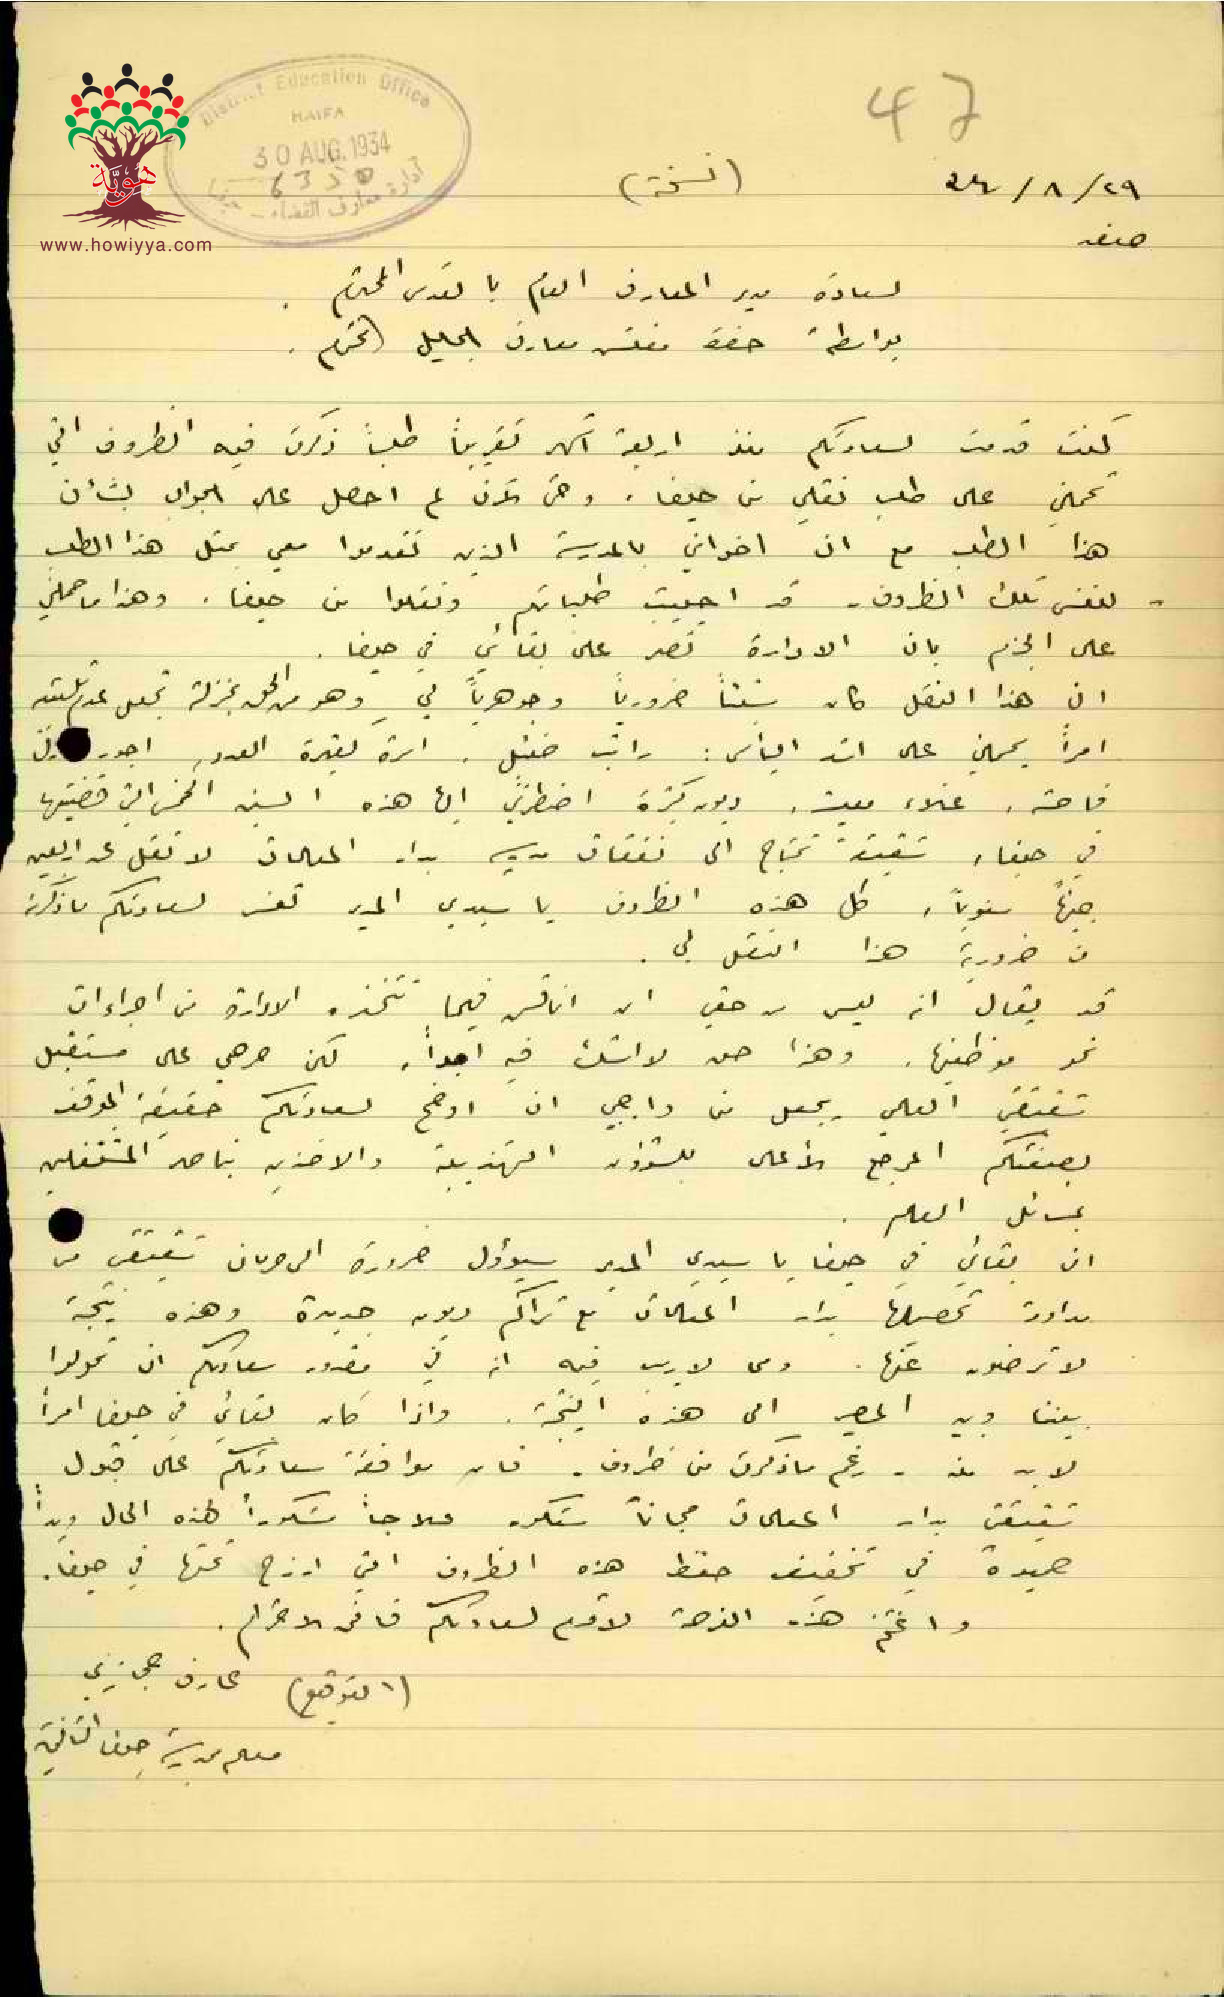 47
District Education Office
HAIFA
30 AUG. 1934
6350
ادارة معارف القضاء - حيفا
هوية
www.howiyya.com
٢٩/ ٨/ ٣٤
(نسخة)
صفد
لسعادة مدير المعارف العام بالقدس المحترم .
بواسطة حضرة مفتش معارف الجليل المحترم .
كنت قدمت لسعادتكم منذ اربعة اشهر تقريباً طلباً ذكرت فيه الظروف التي
تحملني على طلب نقلي من حيفا . وحتى الآن لم احصل على الجواب بشأن
هذا الطلب مع ان اخواني بالمدرسة الذين تقدموا معي بمثل هذا الطلب
- لنفس تلك الظروف - قد اجيبت طلباتهم ونقلوا من حيفا . وهذا ما حملني
على الجزم بان الادارة تصر على بقائي في حيفا .
ان هذا النقل كان شيئاً ضرورياً وجوهرياً لي وهو من الحق بمنزلة تجعل عدم تلبيته
امراً يحملني على اشد اليأس : راتب ضئيل . اسرة كثيرة العدد . اجور
فاحشة . غلاء معيشة . ديون كثيرة اضطرتني اليها هذه السنين الخمس التي قضيتها
في حيفا . شقيقة تحتاج الى نفقات مدرسية بدار المعلمات لا تقل عن اربعين
جنيهاً سنوياً . كل هذه الظروف يا سيدي المدير تفسر لسعادتكم ما ذكرته
من ضرورية هذا النقل لي .
قد يقال انه ليس من حقي ان اناقش فيما تتخذه الادارة من اجراءات
نحو موظفيها . وهذا حق لا اشك فيه ابداً . لكن حرصي على مستقبل
شقيقتي العلمي يجعل من واجبي ان اوضح لسعادتكم حقيقة الموقف
بصفتكم المرجع الأعلى للشؤون التهذيبية والآخذين بناصر المشتغلين
بمسائل العلم .
ان بقائي في حيفا يا سيدي المدير سيؤول ضرورة الى حرمان شقيقتي من
مداومة تحصيلها بدار المعلمات مع تراكم ديون جديدة وهذه نتيجة
لا ترضون عنها . ومما لا ريب فيه انه في مقدور سعادتكم ان تحولوا
بيننا وبين المصير الى هذه النتيجة . واذا كان بقائي في حيفا امراً
لا بد منه - رغم ما ذكرت من ظروف - فان موافقة سعادتكم على قبول
شقيقتي بدار المعلمات مجاناً ستكون علاجاً مشكوراً لهذه الحال ويداً
حميدة في تخفيف ضغط هذه الظروف التي ارزح تحتها في حيفا .
واغتنم هذه الفرصة لاقدم لسعادتكم فائق الاحترام .
(التوقيع) عارف حجازي
معلم بمدرسة حيفا الثانية